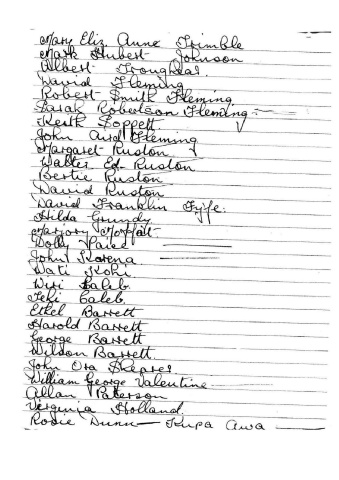 Mary Eliz Anne Trimble
Mark Hubert Johnson
Albert Troughear
David Fleming
Robert Smith Fleming
Sarah Robertson Fleming
Keith Soppett
John Aird Fleming
Margaret Ruston
Walter Ed Ruston
Bertie Ruston
David Ruston
David Franklin Fyfe.
Hilda Grundy
Marjory Moffat
Dolly Paice
John Korena
Wati Kohi
Wiri Caleb
Teki Caleb.
Ethel Barrett
Harold Barrett
George Barrett
Wilson Barrett.
John Ora Shearer
William George Valentine
Allan Paterson
Virginia Holland.
Rosie Dunn - Kupa Awa